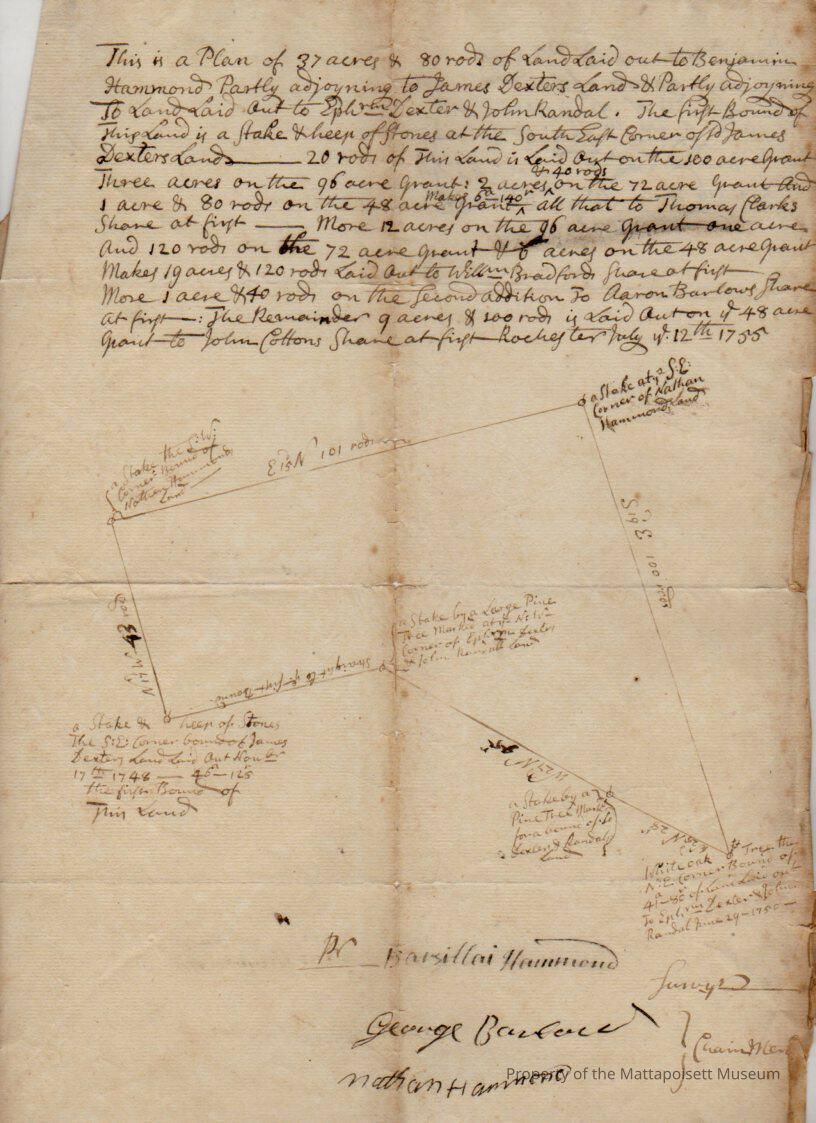 This is a Plan of 37 acres & 80 rods of Land Laid out to Benjamin
Hammond Partly adjoyning to James Dexters Land & Partly adjoyning
To Land Laid Out to Ephrm Dexter & John Randal. The first Bound of
This Land is a Stake & heep of Stones at the South East Corner of sd James
Dexters Land 20 rods of This Land is Laid Out on the 100 acre Grant
& 40 rods
Three acres on the 96 acre Grant: 2 acres ^ on the 72 acre Grant And
Makes 6a 140r
1 acre & 80 rods on the 48 acre Grant ^ all that to Thomas Clarks
Share at first — More 12 acres on the 96 acre Grant one acre
And 120 rods on the 72 acre Grant & 6 acres on the 48 acre Grant
Makes 19 acres & 120 rods Laid Out to Willm Bradfords Share at first
More 1 acre & 40 rods on the Second addition To Aaron Barlows Share
at first —: The Remainder 9 acres & 100 rods is Laid Out on ye 48 acre
Grant to John Cottons Share at first Rochester July ye 12th 1755
a Stake at ye S:E:
Corner of Nathan
Hammonds Land
a Stake the S:W:
Corner Bound of
Nathan Hammonds
Land
E 15 N 101 rods
S 19 E 100 rods
N 17 W 43 rods
a Stake by a Large Pine
Tree Marked at ye N:W:
Corner of Ephrm Dexters
& John Randals Land
Straight to ye first Bound
a Stake & heep of Stones
The S:E: Corner bound of James
Dexters Land Laid Out Novbr
17th 1748 — 46a - 125
the first Bound of
This Land
W 27 N
a Stake by a
Pine Tree Markd
for a bound of sd
Dexter & Randals
Land
White oak Tree the
N:E: Corner Bound of
Land Laid out
To Ephrm Dexter & John
Randal June 29 - 1750
Pr Barsillai Hammond
Survyr
George Barlow
Chain Men
Nathan Hammond
Property of the Mattapoisett Museum